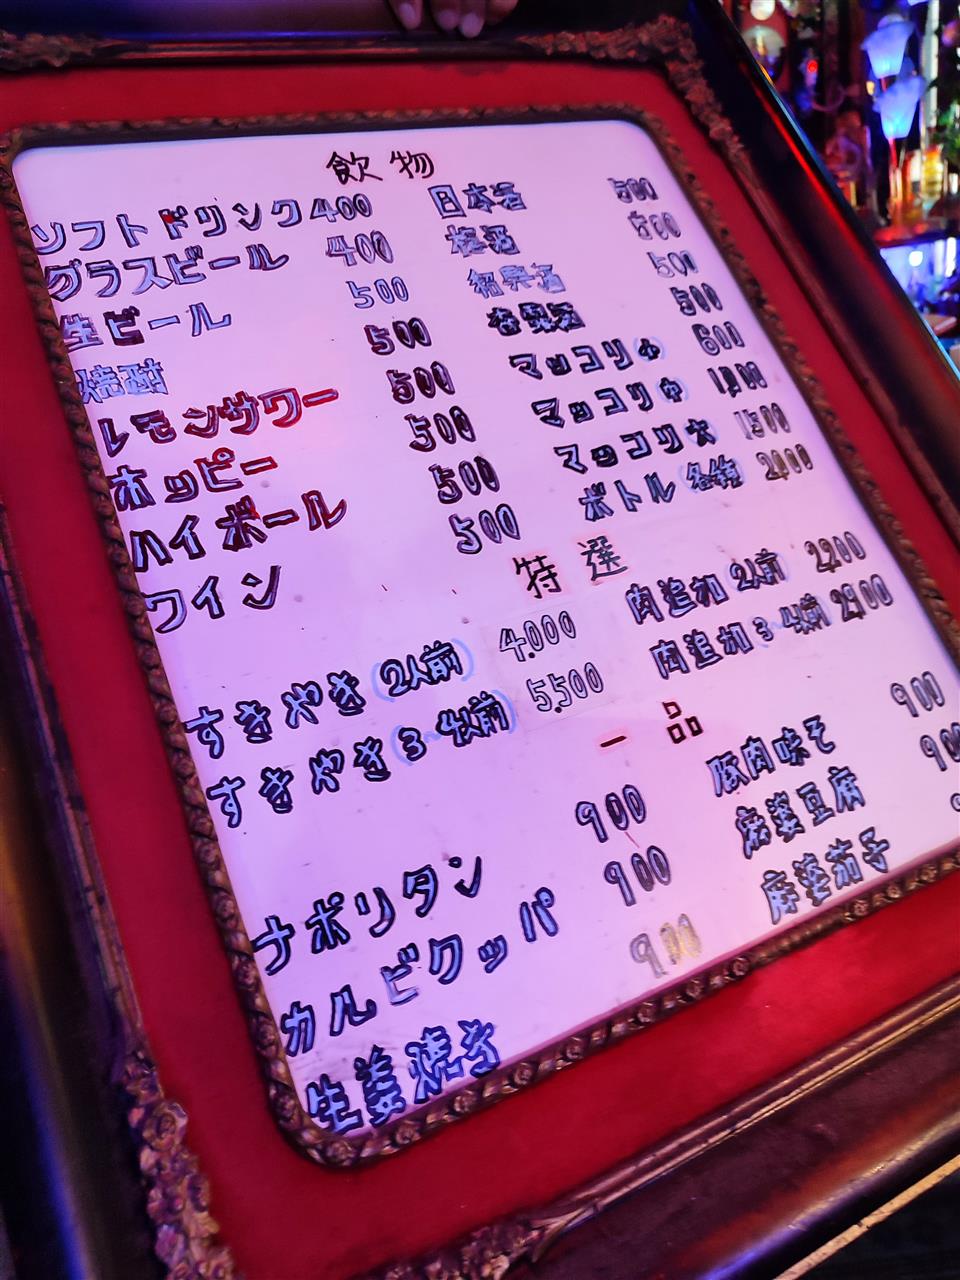 飲物
ソフトドリンク 400 日本酒 500
グラスビール 400 梅酒 500
生ビール 500 紹興酒 500
焼酎 500 杏露酒 500
レモンサワー 500 マッコリ小 600
ホッピー 500 マッコリ中 1,200
ハイボール 500 マッコリ大 1500
ワイン 500 ボトル(各種) 2,000
特選
すきやき(2人前) 4.000 肉追加 2人前 2,200
すきやき(3~4人前) 5.500 肉追加 3~4人前 2,900
一品
ナポリタン 900 豚肉味そ 900
カルビクッパ 900 麻婆豆腐
生姜焼き 900 麻婆茄子